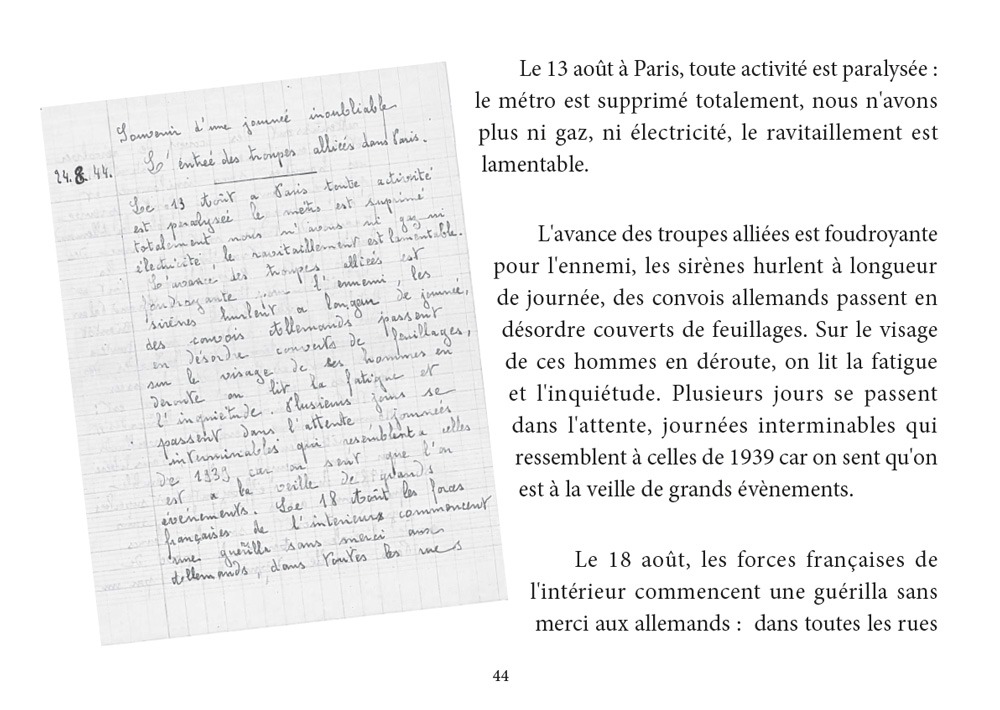 Souvenir d'une journeé inoubliable
24.8.44.
L'entreé des troupes allieés dans Paris.
Le 13 Août a Paris toute activité
est paralyseé le métro est suprimé
totalement nous n'avons ni gaz ni
électricité le ravitaillement est lamentable.
L'avance des troupes allieés est
foudroyante pour l'ennemi, les
sirènes hurlent a longueur de journeé,
des convois Allemands passent
en désordre couverts de feuillages,
sur le visage de ses hommes en
déroute on lit la fatigue et
l'inquiétude. Plusieurs jours se
passent dans l'attente journeés
interminables qui resemblent a celles
de 1939 car on sent que l'on
est a la veille de grands
événements. Le 18 Août les forces
françaises de l'interieur commencent
une guérilla sans merci aux
Allemands, dans toutes les rues
Le 13 août à Paris, toute activité est paralysée :
le métro est supprimé totalement, nous n'avons
plus ni gaz, ni électricité, le ravitaillement est
lamentable.
L'avance des troupes alliées est foudroyante
pour l'ennemi, les sirènes hurlent à longueur
de journée, des convois allemands passent en
désordre couverts de feuillages. Sur le visage
de ces hommes en déroute, on lit la fatigue
et l'inquiétude. Plusieurs jours se passent
dans l'attente, journées interminables qui
ressemblent à celles de 1939 car on sent qu'on
est à la veille de grands évènements.
Le 18 août, les forces françaises de
l'intérieur commencent une guérilla sans
merci aux allemands : dans toutes les rues
44